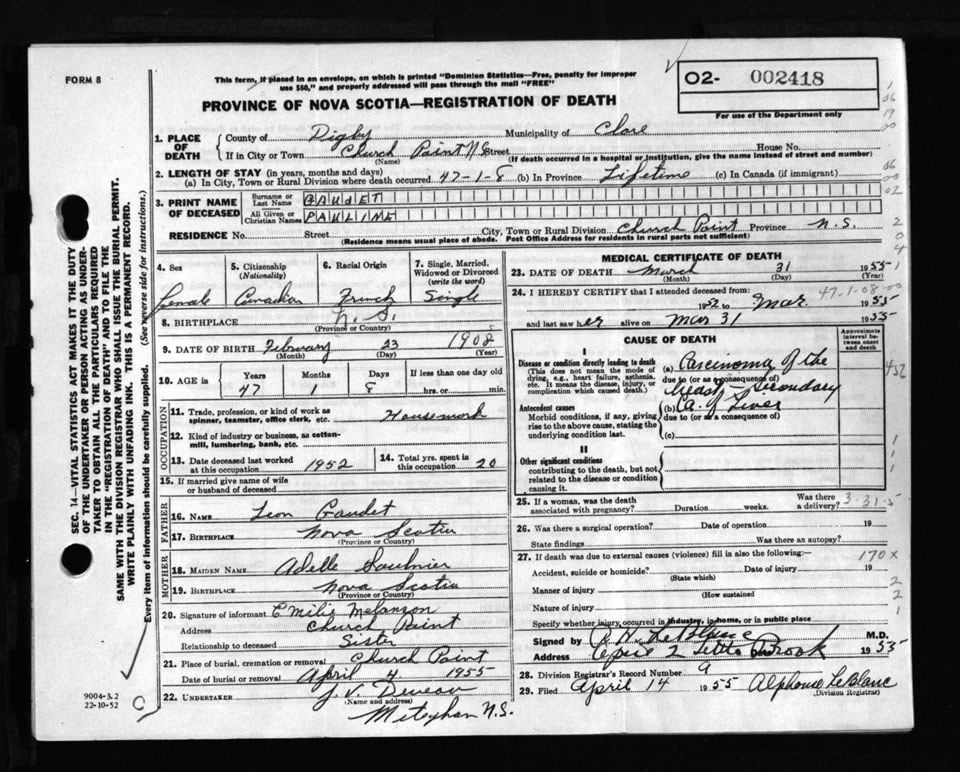 FORM 8
This form, if placed in an envelope, on which is printed "Dominion Statistics—Free, penalty for improper
use $50," and properly addressed will pass through the mail "FREE"
O2- 002418
For use of the Department only
PROVINCE OF NOVA SCOTIA—REGISTRATION OF DEATH
1. PLACE OF DEATH { County of Digby Municipality of Clare
If in City or Town Church Point N.S. Street House No.
(Name) (If death occurred in a hospital or institution, give the name instead of street and number)
2. LENGTH OF STAY (in years, months and days)
(a) In City, Town or Rural Division where death occurred 47-1-8 (b) In Province Lifetime (c) In Canada (if immigrant)
3. PRINT NAME OF DECEASED { Surname or Last Name GAUDET
All Given or Christian Names PAULINE
RESIDENCE No. Street City, Town or Rural Division Church Point Province N.S.
(Residence means usual place of abode. Post Office Address for residents in rural parts not sufficient)
4. Sex 5. Citizenship (Nationality) 6. Racial Origin 7. Single, Married, Widowed or Divorced (write the word)
Female Canadian French Single
8. BIRTHPLACE N.S.
(Province or Country)
9. DATE OF BIRTH February 23 1908
(Month) (Day) (Year)
10. AGE in { Years Months Days If less than one day old
47 1 8 hrs. or min.
OCCUPATION
11. Trade, profession, or kind of work as spinner, teamster, office clerk, etc. Housework
12. Kind of industry or business, as cotton-mill, lumbering, bank, etc.
13. Date deceased last worked at this occupation 1952 14. Total yrs. spent in this occupation 20
15. If married give name of wife or husband of deceased
FATHER
16. NAME Leon Gaudet
17. BIRTHPLACE Nova Scotia
(Province or Country)
MOTHER
18. MAIDEN NAME Adelle Saulnier
19. BIRTHPLACE Nova Scotia
(Province or Country)
20. Signature of informant Emilie Melanson
Address Church Point
Relationship to deceased Sister
21. Place of burial, cremation or removal Church Point
Date of burial or removal April 4 1955
22. UNDERTAKER J. V. Deveau
(Name and address)
Meteghan N.S.
MEDICAL CERTIFICATE OF DEATH
23. DATE OF DEATH March 31 1955
(Month) (Day) (Year)
24. I HEREBY CERTIFY that I attended deceased from: 47-1-08-00
1952 to Mar. 1955
and last saw her alive on Mar 31 1955
CAUSE OF DEATH
Approximate interval between onset and death
I
Disease or condition directly leading to death
(This does not mean the mode of dying, e.g., heart failure, asthenia, etc. It means the disease, injury, or complication which caused death.)
(a) Carcinoma of the
due to (or as a consequence of)
breast - Secondary
Antecedent causes
Morbid conditions, if any, giving rise to the above cause, stating the underlying condition last.
(b) Ca. of Liver
due to (or as a consequence of)
(c)
II
Other significant conditions
contributing to the death, but not related to the disease or condition causing it.
25. If a woman, was the death associated with pregnancy? Duration weeks. Was there a delivery? 3-31-5
26. Was there a surgical operation? Date of operation 19
State findings Was there an autopsy?
27. If death was due to external causes (violence) fill in also the following:— 170X
Accident, suicide or homicide? Date of injury 19
(State which)
Manner of injury
(How sustained
Nature of injury
Specify whether injury occurred in industry, in home, or in public place
Signed by LeBlanc M.D.
Address Little Brook 1955
28. Division Registrar's Record Number 9
29. Filed April 14 1955 Alphonse LeBlanc
(Division Registrar)
SEC. 14—VITAL STATISTICS ACT MAKES IT THE DUTY
OF THE UNDERTAKER OR PERSON ACTING AS UNDER-
TAKER TO OBTAIN ALL THE PARTICULARS REQUIRED
IN THE "REGISTRATION OF DEATH" AND TO FILE THE
SAME WITH THE DIVISION REGISTRAR WHO SHALL ISSUE THE BURIAL PERMIT.
WRITE PLAINLY WITH UNFADING INK. THIS IS A PERMANENT RECORD.
Every item of information should be carefully supplied. (See reverse side for instructions.)
9004-3.2
22-10-52